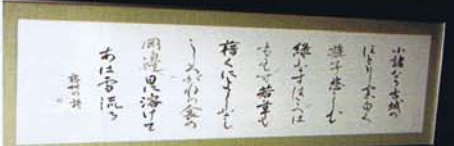 小諸なる古城の
ほとり雲白く
遊子悲しむ
緑なすはこべは
もえず若草も
藉くによしなし
しろがねの衾の
岡邊日に溶けて
あは雪流る
藤村の詩